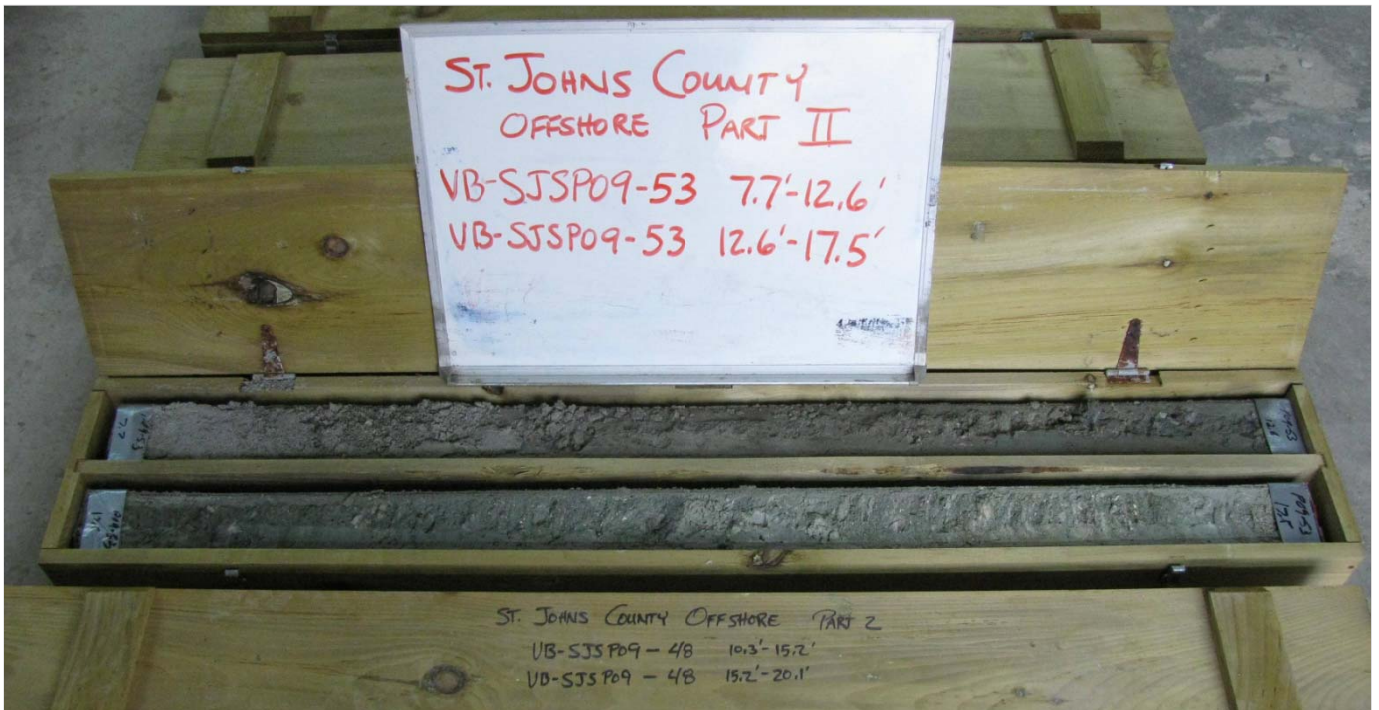 ST. JOHNS COUNTY
OFFSHORE PART II
VB-SJSP09-53 7.7'-12.6'
VB-SJSP09-53 12.6'-17.5'
7.7
12.6
P09-53
ST. JOHNS COUNTY OFFSHORE PART 2
VB-SJSP09-48 10.3'-15.2'
VB-SJSP09-48 15.2'-20.1'